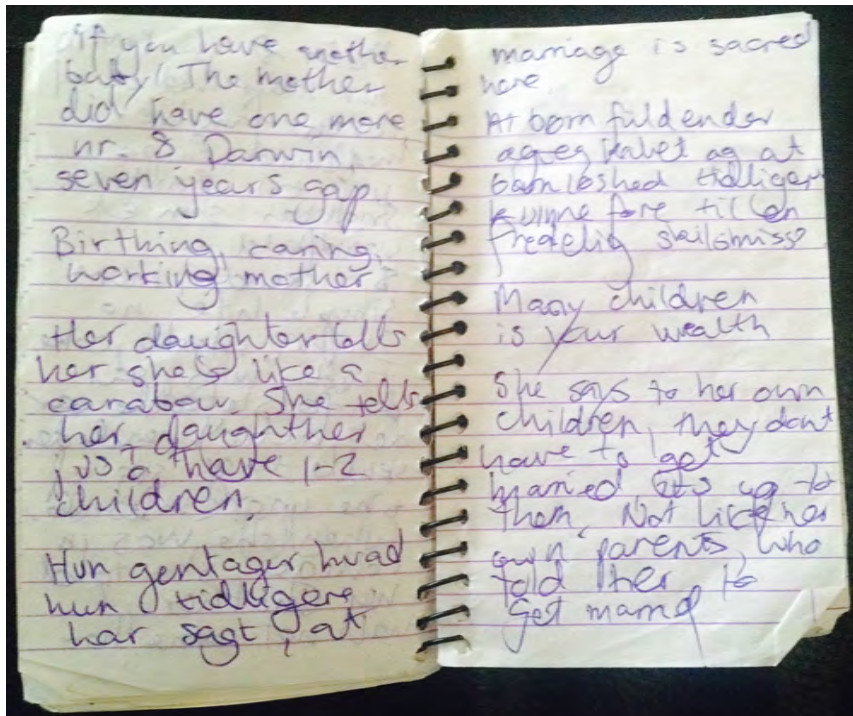 if you have another
baby! The mother
did have one more
nr. 8 Darwin,
seven years gap.
Birthing, caring,
working mother
Her daughter tells
her she's like a
carabou. She tells
her daughther
just have 1-2
children.
Hun gentager hvad
hun tidligere
har sagt, at
marriage is sacred
here.
At børn fuldender
ægteskabet og at
barnløshed tidligere
kunne føre til en
fredelig skilsmisse
Many children
is your wealth
She says to her own
children, they dont
have to get
married, its up to
them, Not like her
own parents, who
told her to
get married